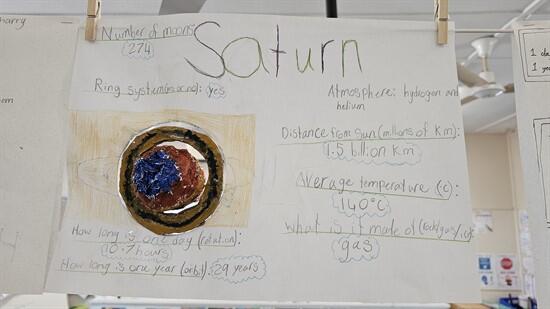 Saturn
Number of moons:
274
Ring system(yes or no): yes
Atmosphere: hydrogen and
helium
Distance from sun (millions of km):
1.5 billion km
Average temperature (°c):
140°c
What is it made of (rock/gas/ice)
gas
How long is one day (rotation):
10.7 hours
How long is one year (orbit): 29 years
harry
STOP